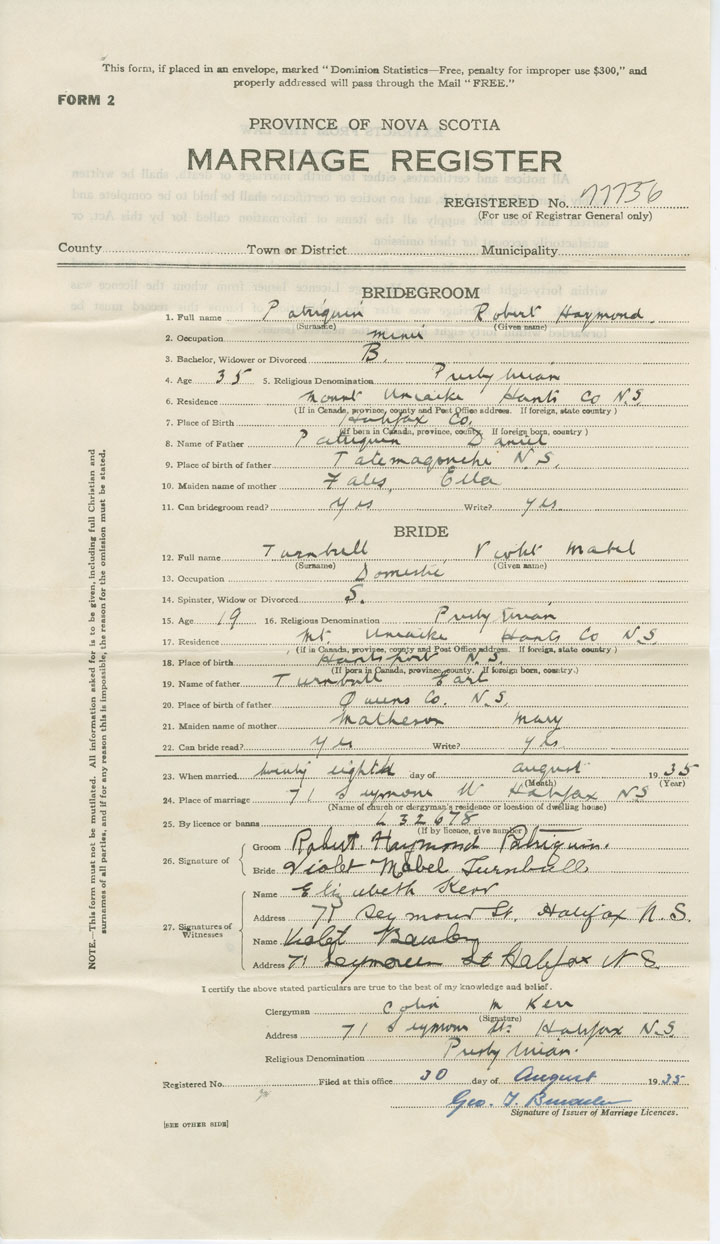 This form, if placed in an envelope, marked "Dominion Statistics—Free, penalty for improper use $300," and
properly addressed will pass through the Mail "FREE."
FORM 2
PROVINCE OF NOVA SCOTIA
MARRIAGE REGISTER
REGISTERED No.
(For use of Registrar General only)
County Town or District Municipality
BRIDEGROOM
1. Full name Patriquin Robert Haymond
(Surname) (Given name)
2. Occupation miner
3. Bachelor, Widower or Divorced B.
4. Age 35 5. Religious Denomination Presbyterian
6. Residence Mount Uniacke Hants Co N.S
(If in Canada, province, county and Post Office address. If foreign, state country)
7. Place of Birth Halifax Co.
(If born in Canada, province, county. If foreign born, country)
8. Name of Father Patriquin Daniel
9. Place of birth of father Tatemagouche N.S.
10. Maiden name of mother Fales, Ella
11. Can bridegroom read? yes Write? yes
BRIDE
12. Full name Turnbull Violet Mabel
(Surname) (Given name)
13. Occupation Domestic
14. Spinster, Widow or Divorced S.
15. Age 19 16. Religious Denomination Presbyterian
17. Residence Mt. Uniacke Hants Co N.S
(If in Canada, province, county and Post Office address. If foreign, state country)
18. Place of birth Hantsport N.S.
(If born in Canada, province, county. If foreign born, country.)
19. Name of father Turnbull Earl
20. Place of birth of father Queens Co. N.S.
21. Maiden name of mother Matheson Mary
22. Can bride read? yes Write? yes.
23. When married twenty eighth day of august 1935
(Month) (Year)
24. Place of marriage 71 Seymour St Halifax NS
(Name of church or clergyman's residence or location of dwelling house)
25. By licence or banns L 32678
(If by licence, give number)
26. Signature of
Groom Robert. Haymond Patriquin.
Bride Violet Mabel Turnbull
27. Signatures of Witnesses
Name Elizabeth Kerr
Address 71 Seymour St. Halifax N.S.
Name Violet
Address 71 Seymour St Halifax N.S.
I certify the above stated particulars are true to the best of my knowledge and belief.
Clergyman Colin M Kerr
(Signature)
Address 71 Seymour St. Halifax N.S
Religious Denomination Presbyterian.
Registered No. Filed at this office 30 day of August 1935
Geo. T.
Signature of Issuer of Marriage Licences.
[SEE OTHER SIDE]
NOTE.—This form must not be mutilated. All information asked for is to be given, including full Christian and
surnames of all parties, and if for any reason this is impossible, the reason for the omission must be stated.